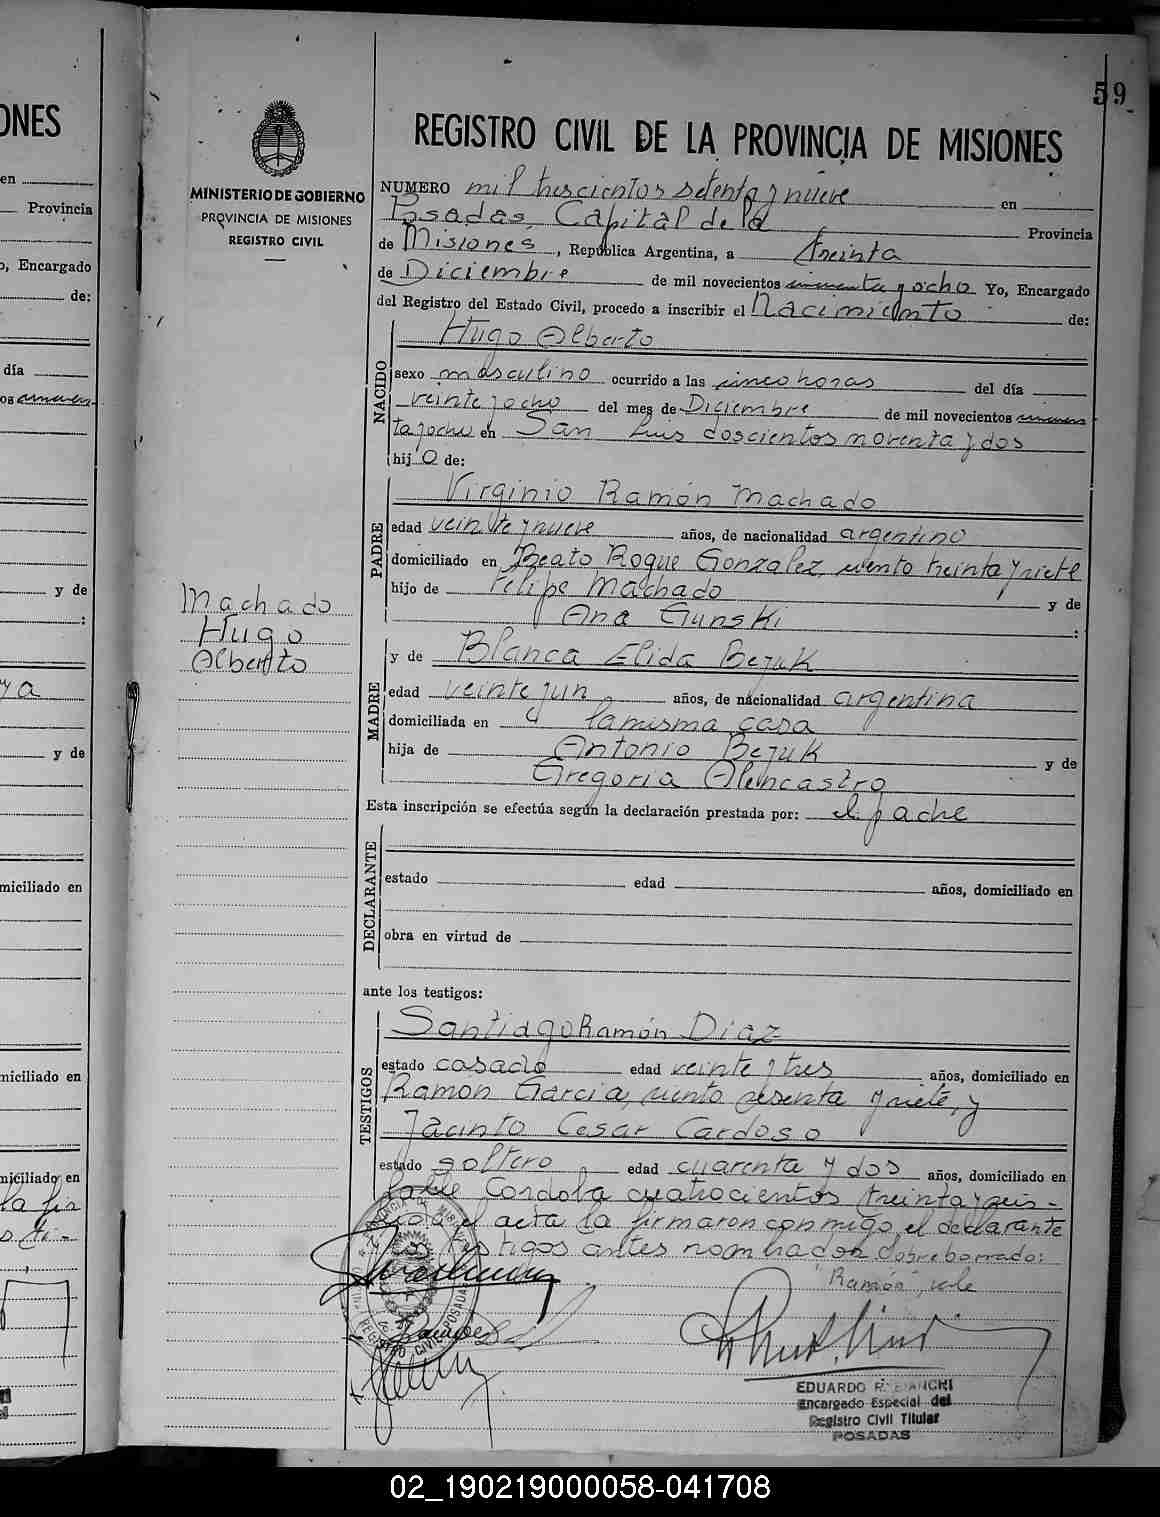 59
ONES
en
Provincia
o, Encargado
de:
día
os
y de
:
ya
y de
miciliado en
miciliado en
miciliado en
la fir
MINISTERIO DE GOBIERNO
PROVINCIA DE MISIONES
REGISTRO CIVIL
Machado
Hugo
Alberto
REGISTRO CIVIL DE LA PROVINCIA DE MISIONES
NUMERO mil trescientos setenta y nueve en
Posadas, Capital de la Provincia
de Misiones, República Argentina, a treinta
de Diciembre de mil novecientos cincuenta y ocho Yo, Encargado
del Registro del Estado Civil, procedo a inscribir el Nacimiento de:
Hugo Alberto
NACIDO
sexo masculino ocurrido a las cinco horas del día
veinte y ocho del mes de Diciembre de mil novecientos cincuen
ta y ocho en San Luis doscientos noventa y dos
hijo de:
PADRE
Virginio Ramón Machado
edad veinte y nueve años, de nacionalidad argentino
domiciliado en Beato Roque Gonzalez, ciento treinta y siete
hijo de Felipe Machado y de
Ana Gunski :
MADRE
y de Blanca Elida Bezuk
edad veinte y un años, de nacionalidad argentina
domiciliada en la misma casa
hija de Antonio Bezuk y de
Gregoria Alencastro
Esta inscripción se efectúa según la declaración prestada por: el padre
DECLARANTE
estado edad años, domiciliado en
obra en virtud de
ante los testigos:
TESTIGOS
Santiago Ramón Diaz
estado casado edad veinte y tres años, domiciliado en
Ramón Garcia, ciento sesenta y siete, y
Jacinto Cesar Cardoso
estado soltero edad cuarenta y dos años, domiciliado en
calle Cordoba cuatrocientos treinta y seis-
el acta la firmaron conmigo, el declarante
testigos antes nombrados sobreborrado:
"Ramón", vale
REGISTRO CIVIL POSADAS
EDUARDO R. BIANCHI
Encargado Especial del
Registro Civil Titular
POSADAS
02_190219000058-041708